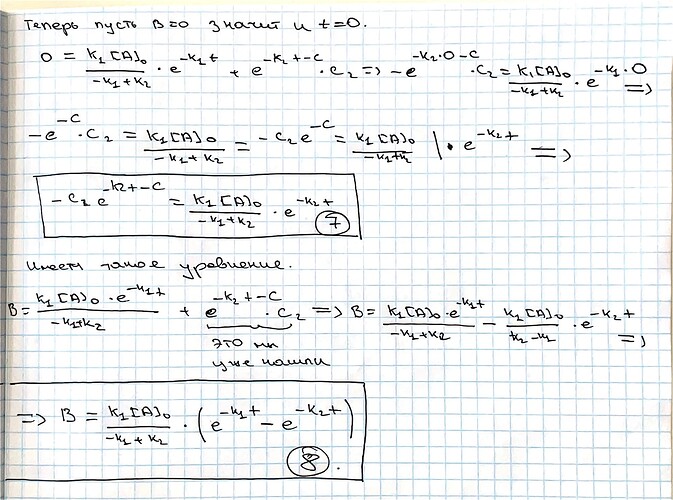 Теперь пусть B=0 значит и t=0.
0 = K₁[A]₀/(-K₁+K₂) · e^(-K₁t) + e^(-K₂t-C) · C₂ => -e^(-K₂·0-C) · C₂ = K₁[A]₀/(-K₁+K₂) · e^(-K₁·0) =>
-e^(-C) · C₂ = K₁[A]₀/(-K₁+K₂) = -C₂e^(-C) = K₁[A]₀/(-K₁+K₂) | · e^(-K₂t) =>
-C₂ e^(-K₂t-C) = K₁[A]₀/(-K₁+K₂) · e^(-K₂t) (7)
Имеем такое уравнение.
B = K₁[A]₀ · e^(-K₁t)/(-K₁+K₂) + e^(-K₂t-C) · C₂ => B = K₁[A]₀ · e^(-K₁t)/(-K₁+K₂) - K₁[A]₀/(K₂-K₁) · e^(-K₂t) =>
это мы
уже нашли
=> B = K₁[A]₀/(-K₁+K₂) · (e^(-K₁t) - e^(-K₂t))
(8).